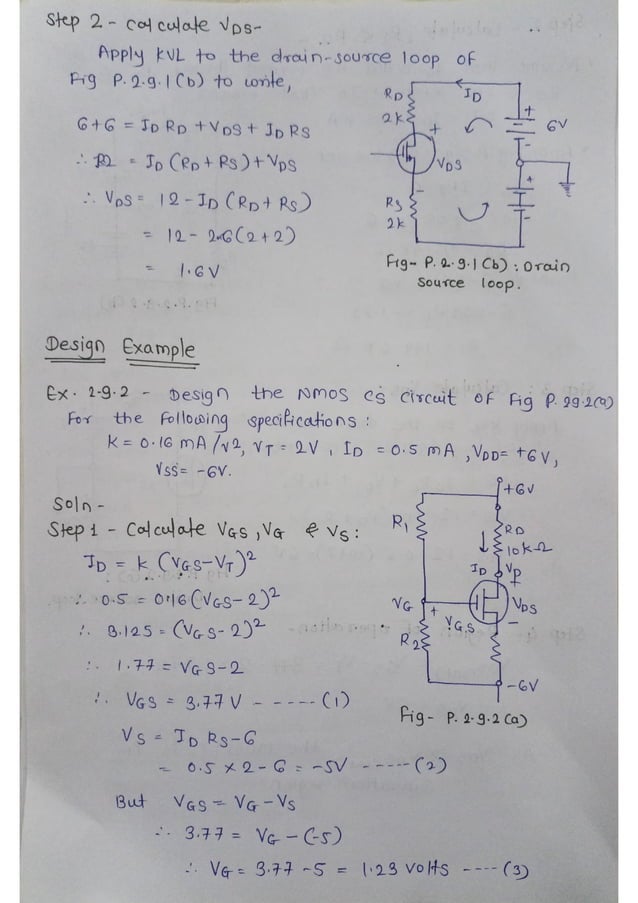 Step 2 - calculate VDS-
Apply KVL to the drain-source loop of
Fig P. 2.9.1 (b) to write,
6+6 = ID RD + VDS + ID RS
∴ 12 = ID (RD + RS) + VDS
∴ VDS = 12 - ID (RD + RS)
= 12 - 2.6 (2+2)
= 1.6 V
RD
2k
ID
+
6V
-
+
VDS
-
+
-
RS
2k
Fig- P. 2.9.1 (b) : Drain
Source loop.
Design Example
Ex. 2.9.2 - Design the NMOS CS circuit of Fig P. 29.2(a)
For the following specifications :
K = 0.16 mA / V2, VT = 2V, ID = 0.5 mA, VDD = +6V,
VSS = -6V.
Soln -
Step 1 - Calculate VGS, VG & VS :
ID = K (VGS - VT)2
∴ 0.5 = 0.16 (VGS - 2)2
∴ 3.125 = (VGS - 2)2
∴ 1.77 = VGS - 2
∴ VGS = 3.77 V - - - - - (1)
VS = ID RS - 6
= 0.5 x 2 - 6 = -5V - - - - - (2)
But VGS = VG - VS
∴ 3.77 = VG - (-5)
∴ VG = 3.77 - 5 = 1.23 volts - - - - (3)
+6V
R1
RD
10kΩ
ID
VD
+
VG
+
VGS
VDS
-
R2
-6V
Fig- P. 2.9.2 (a)